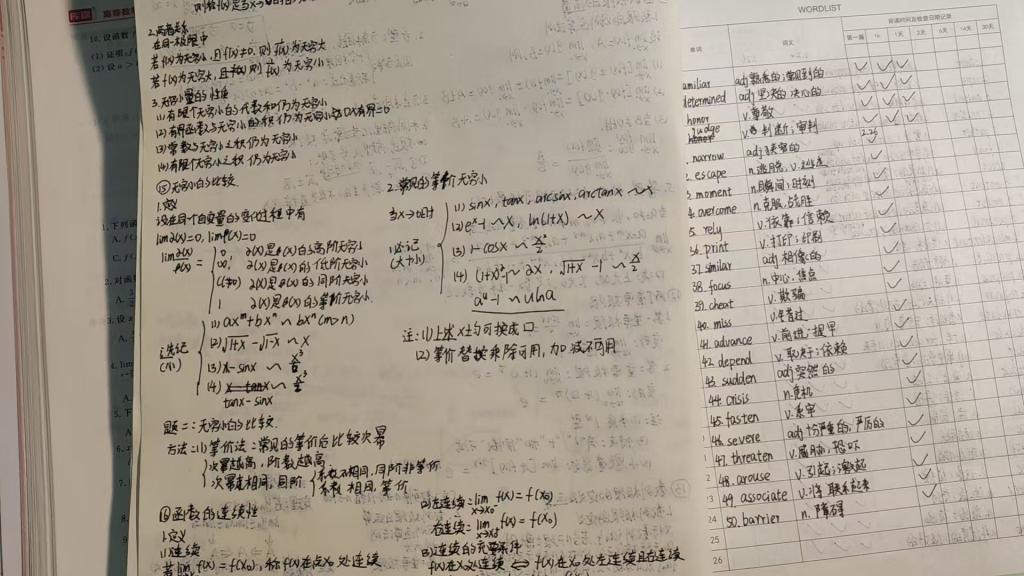 2.两者关系
在同一极限中
若f(x)为无穷小,且f(x)≠0,则1/f(x)为无穷大
若f(x)为无穷大,则1/f(x)为无穷小
3.无穷小量的性质
(1)有限个无穷小的代数和仍为无穷小
(2)有界函数与无穷小的积仍为无穷小
(3)常数与无穷小之积仍为无穷小
(4)有限个无穷小之积仍为无穷小
⑤无穷小的比较
1.定义
设在同一个自变量的变化过程中有
limα(x)=0,limβ(x)=0
lim α(x)/β(x) =
0 α(x)是β(x)的高阶无穷小
∞, α(x)是β(x)的低阶无穷小
C(≠0) α(x)是β(x)的同阶无穷小
1 α(x)是β(x)的等价无穷小
选记
(小)
(1) axᵐ+bxⁿ ~ bxⁿ (m>n)
(2) √1+x - √1-x ~ x
(3) x-sinx ~ x³/6
(4) x-tanx ~ x³/2
tanx-sinx
2.常见的等价无穷小
当x→0时
必记
(大+小)
(1) sinx, tanx, arcsinx, arctanx ~ x
(2) eˣ-1 ~ x, ln(1+x) ~ x
(3) 1-cosx ~ x²/2
(4) (1+x)ᵃ-1 ~ ax, √1+x -1 ~ x/2
aᵘ-1 ~ ulna
注:(1)上述x均可换成口
(2)等价替换乘除可用,加减不可用
题二:无穷小的比较
方法:(1)等价法:常见的等价后比较次幂
次幂越高,阶数越高
次幂相同,同阶
系数不相同,同阶非等价
系数相同,等价
⑥函数的连续性
1.定义
(1)连续
若lim f(x)=f(x₀),称f(x)在点x₀处连续
(2)左连续:lim x→x₀⁻ f(x)=f(x₀)
右连续:lim x→x₀⁺ f(x)=f(x₀)
(3)连续的充要条件
f(x)在x₀处连续⇔f(x)在x₀处左连续且右连续
WORDLIST
单词 词义 背诵时间及检查日期记录
第一遍 1h 1天 2天 6天 14天 30天
amiliar adj.熟悉的;常见到的
determined adj坚决的 决心的
honor v.尊敬
judge v.判断;审判
narrow adj狭窄的
escape n.逃脱,v.逃走
moment n.瞬间;时刻
overcome n.克服,战胜
5. rely v.依靠;信赖
36. print v.打印;印刷
37. similar adj相像的
38. focus n.中心,焦点
39. cheat v.欺骗
40. miss v.错过
41. advance v.前进;提早
42. depend v.取决于;依赖
43. sudden adj突然的
44. crisis n.危机
45. fasten v.系牢
46. severe adj十分严重的,严厉的
47. threaten v.威胁;恐吓
48. arouse v.引起;激起
49. associate v.将联系起来
50. barrier n.障碍
24
25
26